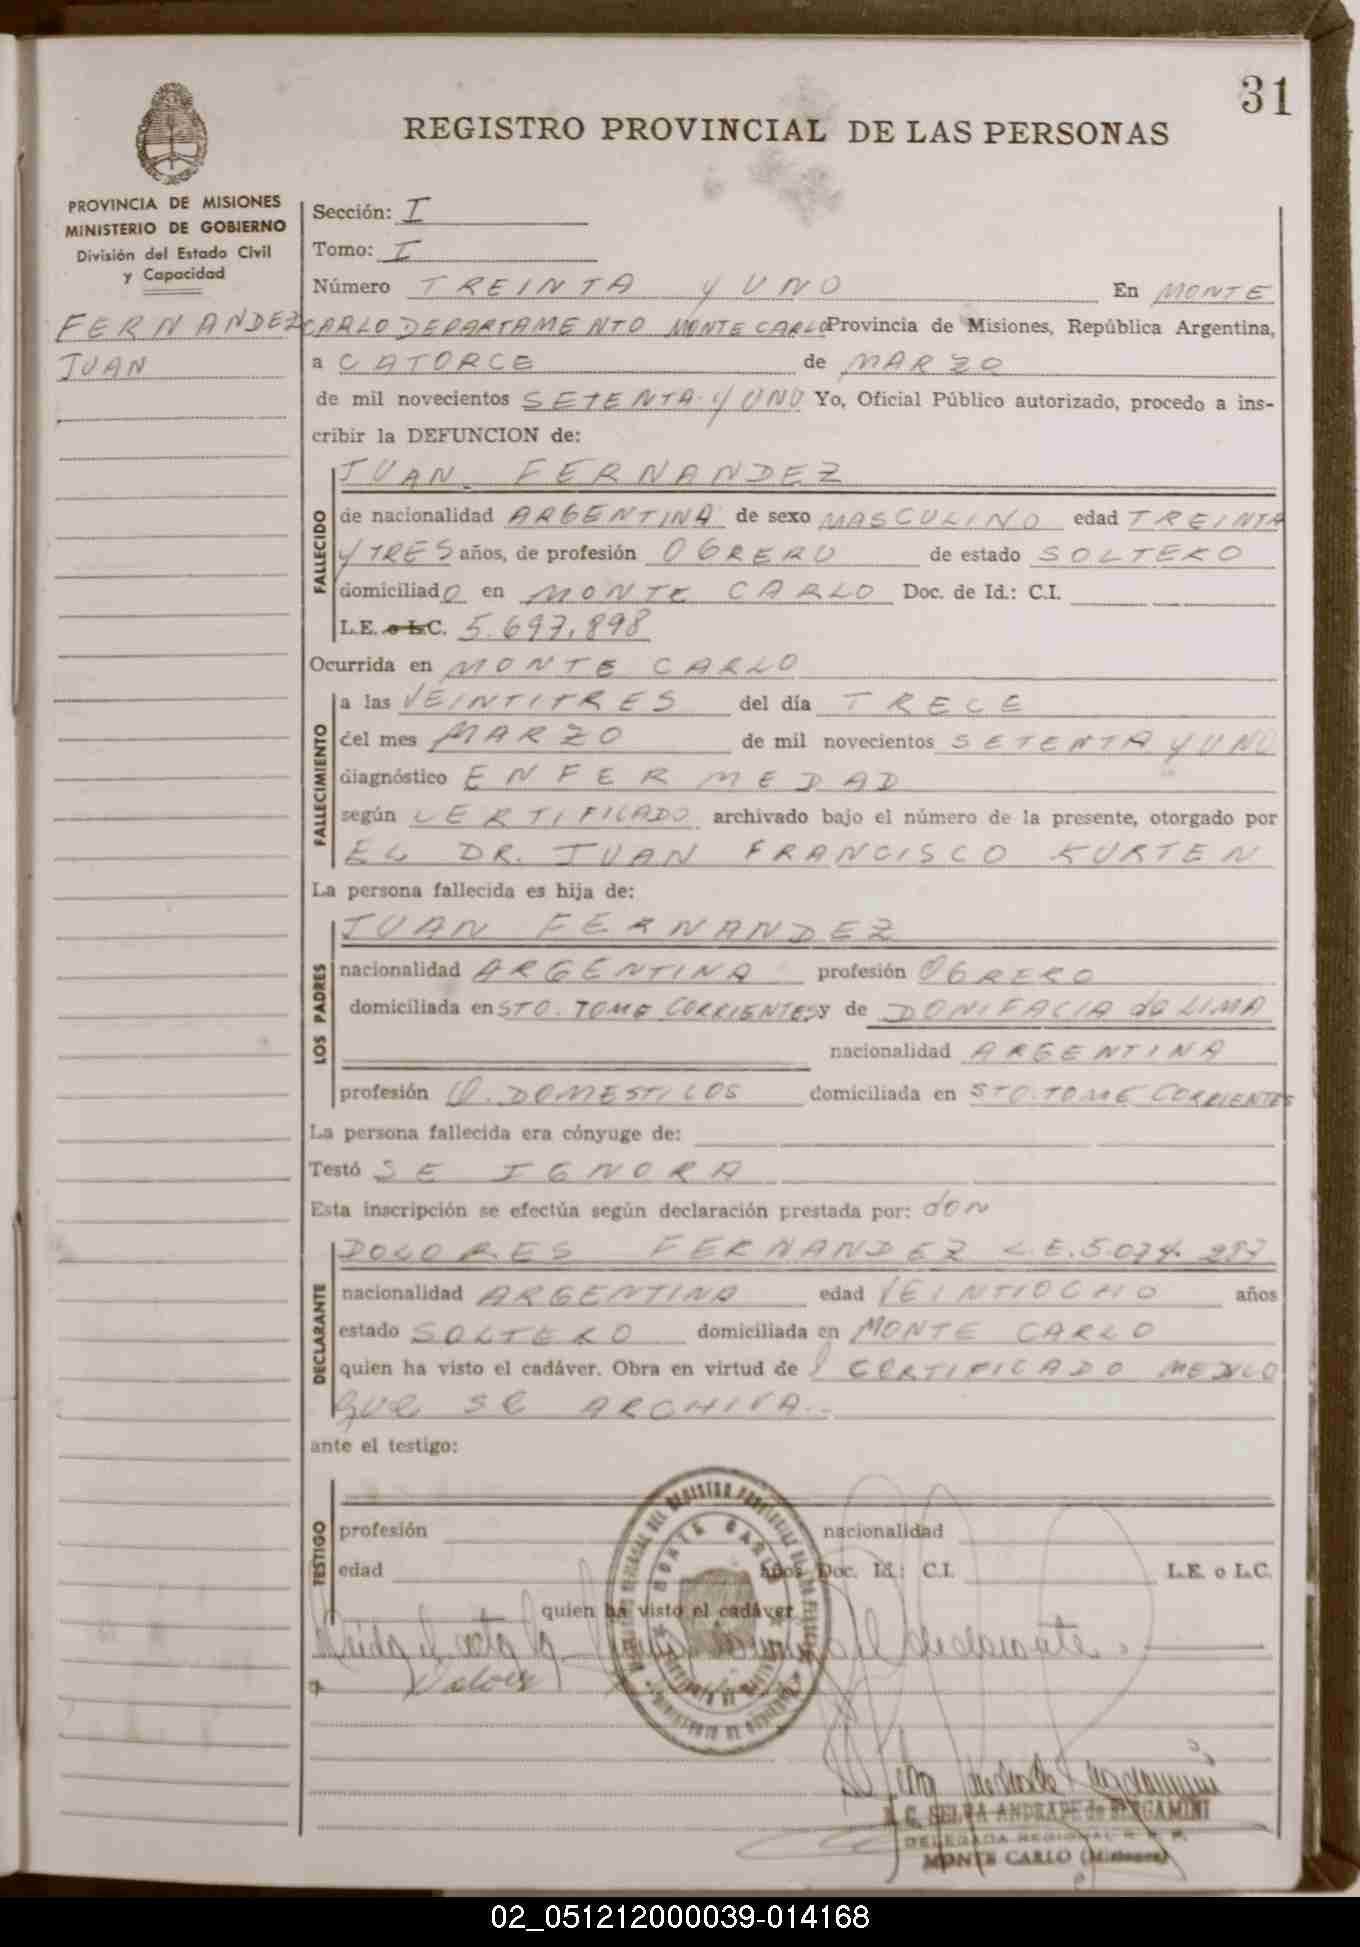 31
REGISTRO PROVINCIAL DE LAS PERSONAS
PROVINCIA DE MISIONES
MINISTERIO DE GOBIERNO
División del Estado Civil
y Capacidad
FERNANDEZ
JUAN
Sección: I
Tomo: I
Número TREINTA y UNO En MONTE
CARLO DEPARTAMENTO MONTE CARLO Provincia de Misiones, República Argentina,
a CATORCE de MARZO
de mil novecientos SETENTA y UNO Yo, Oficial Público autorizado, procedo a ins-
cribir la DEFUNCION de:
JUAN FERNANDEZ
FALLECIDO
de nacionalidad ARGENTINA de sexo MASCULINO edad TREINTA
y TRES años, de profesión OBRERO de estado SOLTERO
domiciliado en MONTE CARLO Doc. de Id.: C.I.
L.E. o L.C. 5.697.898
Ocurrida en MONTE CARLO
FALLECIMIENTO
a las VEINTITRES del día TRECE
del mes MARZO de mil novecientos SETENTA y UNO
diagnóstico ENFERMEDAD
según CERTIFICADO archivado bajo el número de la presente, otorgado por
EL DR. JUAN FRANCISCO KURTEN
La persona fallecida es hija de:
JUAN FERNANDEZ
LOS PADRES
nacionalidad ARGENTINA profesión OBRERO
domiciliada en STO. TOME CORRIENTES y de DONIFACIA da LIMA
nacionalidad ARGENTINA
profesión Q. DOMESTICOS domiciliada en STO. TOME CORRIENTES
La persona fallecida era cónyuge de:
Testó SE IGNORA
Esta inscripción se efectúa según declaración prestada por: don
DOLORES FERNANDEZ L.E. 5.074.257
DECLARANTE
nacionalidad ARGENTINA edad VEINTIOCHO años
estado SOLTERO domiciliada en MONTE CARLO
quien ha visto el cadáver. Obra en virtud del CERTIFICADO MEDICO
QUE SE ARCHIVA.-
ante el testigo:
TESTIGO
profesión nacionalidad
edad años Doc. Id.: C.I. L.E. o L.C.
quien ha visto el cadáver
Leída el acta la del declarante.
MONTE CARLO
S. G. SELVA ANDRADE de BERGAMINI
DELEGADA REGIONAL R. P. P.
MONTE CARLO (Misiones)
02_051212000039-014168